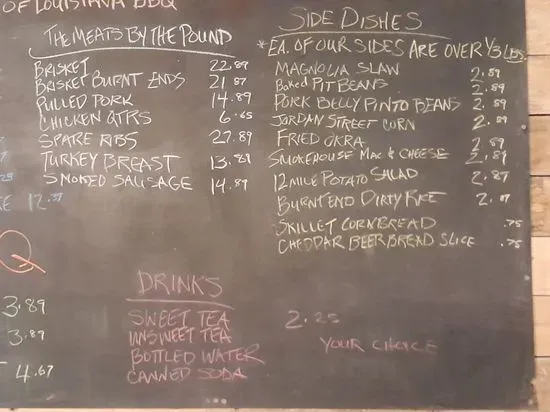 OF LOUISIANA BBQ
THE MEATS BY THE POUND
BRISKET 22.89
BRISKET BURNT ENDS 21.87
PULLED PORK 14.89
CHICKEN QTRS 6.65
SPARE RIBS 27.89
TURKEY BREAST 13.89
SMOKED SAUSAGE 14.89
12.39
3.89
3.89
4.67
SIDE DISHES
*EA. OF OUR SIDES ARE OVER 1/3 LBS.
MAGNOLIA SLAW 2.89
Baked PIT BEANS 2.89
PORK BELLY PINTO BEANS 2.89
JORDAN STREET CORN 2.89
FRIED OKRA 2.89
SMOKEHOUSE MAC & CHEESE 2.89
12 MILE POTATO SALAD 2.87
BURNT END DIRTY RICE 2.87
SKILLET CORNBREAD .75
CHEDDAR BEER BREAD SLICE .75
DRINKS
SWEET TEA 2.25
UNSWEET TEA
YOUR CHOICE
BOTTLED WATER
CANNED SODA